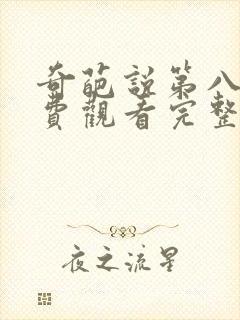 奇葩說第八
費觀看完整
夜之流星